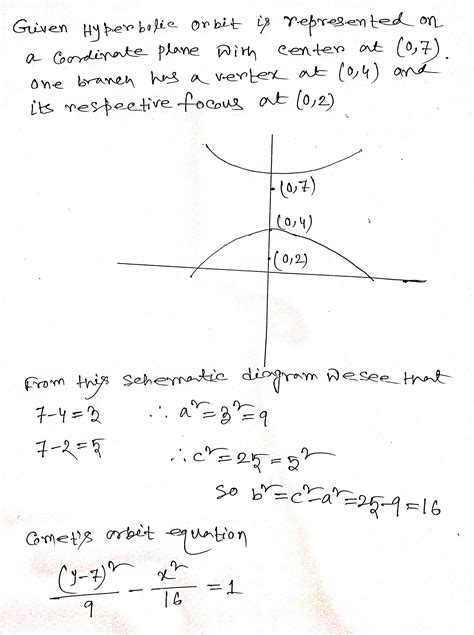 Given Hyperbolic orbit is represented on
a coordinate plane with center at (0,7).
one branch has a vertex at (0,4) and
its respective focous at (0,2)
(0,7)
(0,4)
(0,2)
From this schematic diagram we see that
7-4=3 ∴ a²=3²=9
7-2=5 ∴ c²=25=5²
So b²=c²-a²=25-9=16
Comet's orbit equation
(y-7)²/9 - x²/16 = 1